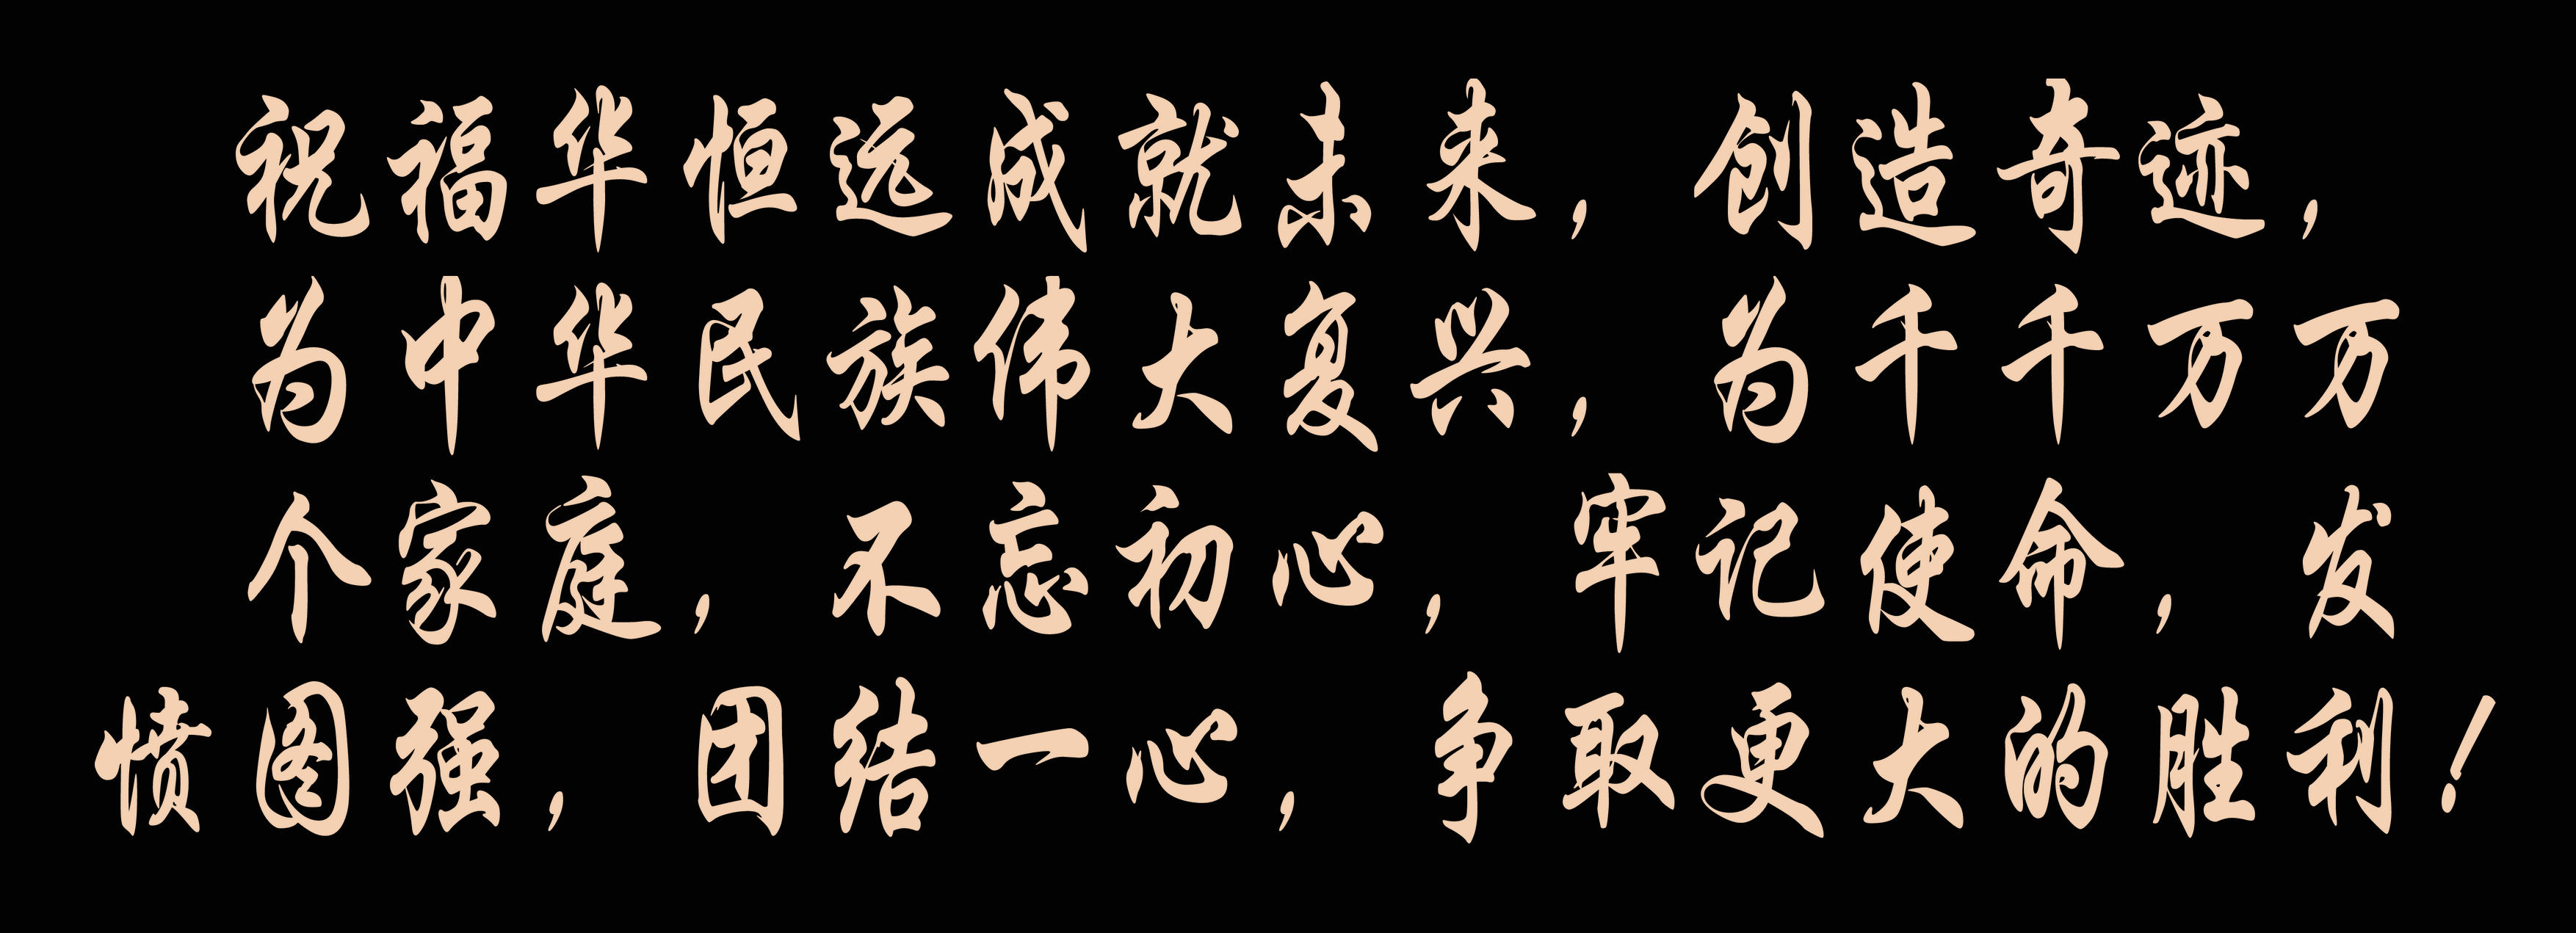 祝福华恒远成就未来，创造奇迹，
为中华民族伟大复兴，为千千万万
个家庭，不忘初心，牢记使命，发
愤图强，团结一心，争取更大的胜利！